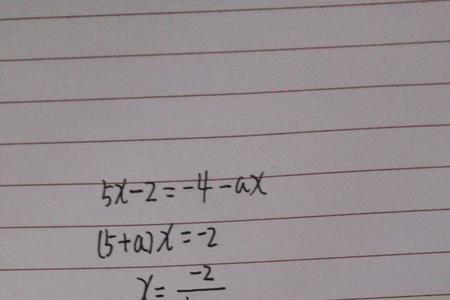 5x-2=-4-ax
(5+a)x=-2
x=-2